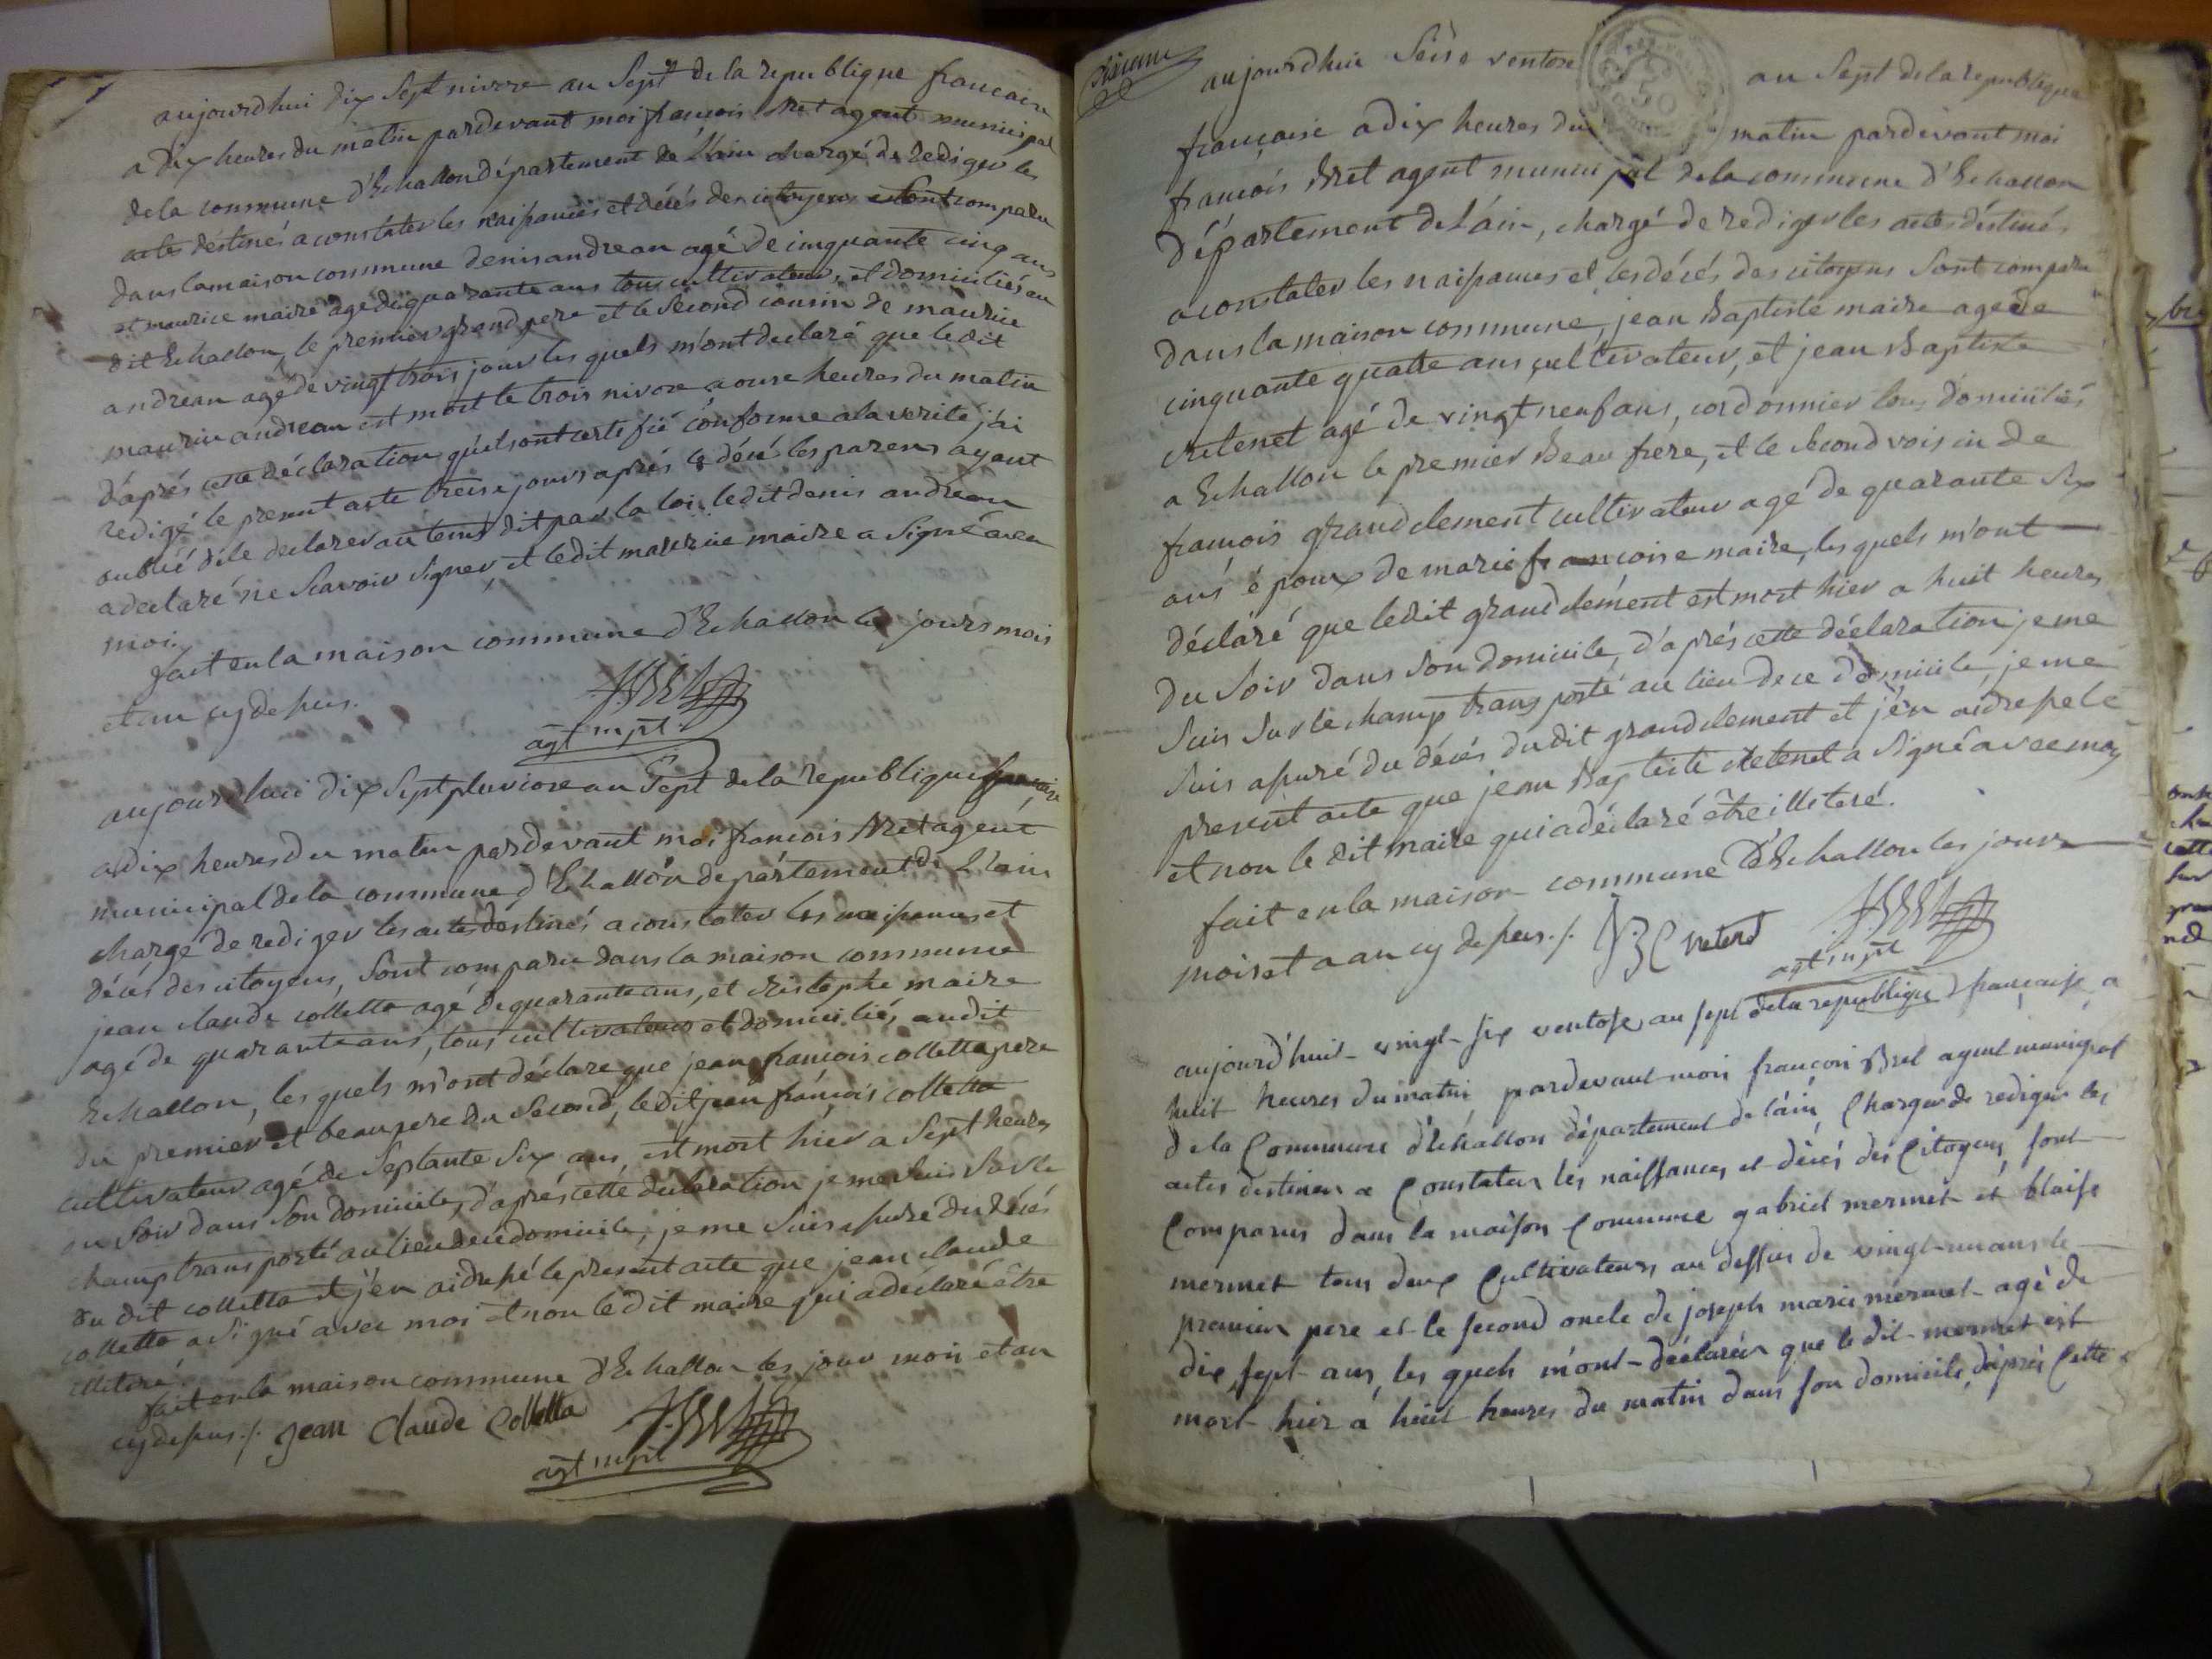 aujourdhui dix Sept nivore an Sept de la republique francaise
a dix heures du matin pardevant moi francois Bret agent municipal
de la commune d'Echallon département de l'ain chargé de rediger les
actes déstinés a constater les naissances et décés des citoyens sont comparu
dans la maison commune denis andrean agé de cinquante cinq ans
et maurice maire agé de quarante ans tous cultivateurs, et domiciliés au
dit Echallon, le premier grand pere et le second cousin de maurice
andrean agé de vingt trois jour les quels m'ont declaré que le dit
maurice andrean est mort le trois nivore a onse heures du matin
d'aprés cette déclaration qu'els ont certifié conforme a la verité j'ai
redigé le present acte treise jours aprés le décé les parens ayant
oublié de le declarer au tems dit par la loi. le dit denis andrean
a declaré ne scavoir signer, et le dit maurice maire a signé avec
moi.
fait en la maison commune d'Echallon les jours mois
et an cy depus.
agt mpt
aujourdhui dix Sept pluviose an Sept de la republique francaise
a dix heures du matin pardevant moi francois Bret agent
municipal de la commune d'Echallon département de L'ain
chargé de rediger les actes déstinés a constater les naissances et
décés des citoyens, sont comparu dans la maison commune
jean claude colletta agé de quarante ans, et christophe maire
agé de quarante ans, tous cultivateurs et domiciliés au dit
Echallon, les quels m'ont déclaré que jean francois colletta pere
du premier et beau pere du second, le dit jean francois colletta
cultivateur agé de septante six ans, est mort hier a sept heures
du soir dans son domicile, d'aprés cette déclaration je me suis sur le
champ transporté au lieu de ce domicile, je me suis assuré du décés
du dit colletta et j'en ai drepé le present acte que jean claude
colletta a signé avec moi et non le dit maire qui a déclaré être
illiteré.
fait en la maison commune d'Echallon les jour mois et an
cy depus ./. Jean Claude Colletta
agt mpt
aujourdhui Seise ventose an Sept de la republique
francaise a dix heures du matin pardevant moi
francois Bret agent municipal de la commune d'Echallon
département de L'ain, chargé de rediger les actes déstinés
a constater les naissances et les décés des citoyens sont comparu
dans la maison commune, jean Baptiste maire agé de
cinquante quatre ans cultivateur, et jean Baptiste
chetenet agé de vingt neuf ans, cordonnier tous domiciliés
a Echallon le premier Beau frére, et le second voisin de
francois grandclement cultivateur agé de quarante six
ans époux de marie francoise maire, les quels m'ont
déclaré que le dit grandclément est mort hier a huit heures
du soir dans son domicile, d'aprés cette déclaration je me
suis sur le champ transporté au lieu de ce domicile, je me
suis assuré du décés du dit grandclement et j'en ai drepé le
present acte que jean Baptiste chetenet a signé avec moy
et non le dit maire qui a déclaré être illiteré.
fait en la maison commune d'Echallon les jours
mois et an cy depus ./. J. B. Chetenet
agt mpt
aujourd'huit vingt-six ventose an sept de la republique française a
huit heures du matin pardevant moi françois Bret agent municipal
de la Commune d'Echallon département de l'ain Charger de rediger les
actes destiner a Constater les naissances et décés des Citoyens sont
Comparus dans la maison Commune gabriel mermet et blaise
mermet tous deux Cultivateurs au dessus de vingt-un ans le
premier pere et le second oncle de joseph marie mermet agé de
dix sept ans, les quels m'ont déclarér que le dit mermet est
mort hier a huit heures du matin dans son domicile d'aprés Cette